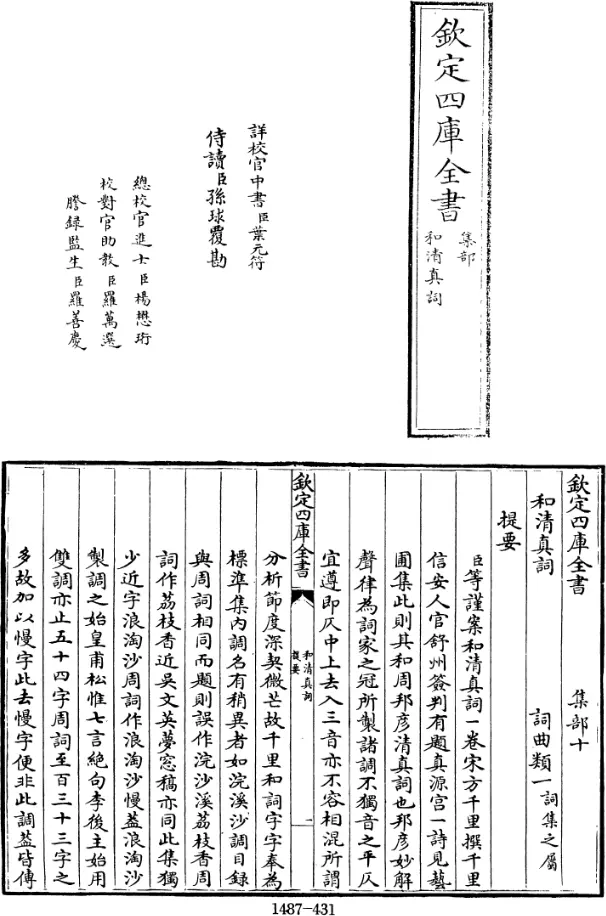 欽定四庫全書
集部
和清真詞
詳校官中書臣葉元符
侍讀臣孫球覆勘
總校官進士臣楊懋珩
校對官助教臣羅萬選
謄錄監生臣羅善慶
欽定四庫全書
集部十
和清真詞
詞曲類一詞集之屬
提要
臣等謹案和清真詞一卷宋方千里撰千里
信安人官舒州簽判有題真源宫一詩見藝
圃集此則其和周邦彦清真詞也邦彦妙解
聲律為詞家之冠所製諸調不獨音之平仄
宜遵即仄中上去入三音亦不容相混所謂
欽定四庫全書
和清真詞
提要
一
分析節度深契微芒故千里和詞字字奉為
標準集内調名有稍異者如浣溪沙調目録
與周詞相同而題則誤作浣沙溪荔枝香周
詞作荔枝香近吳文英夢窓稿亦同此集獨
少近字浪淘沙周詞作浪淘沙慢葢浪淘沙
製調之始皇甫松惟七言絶句李後主始用
雙調亦止五十四字周詞至百三十三字之
多故加以慢字此去慢字便非此調葢皆傳
1487-431